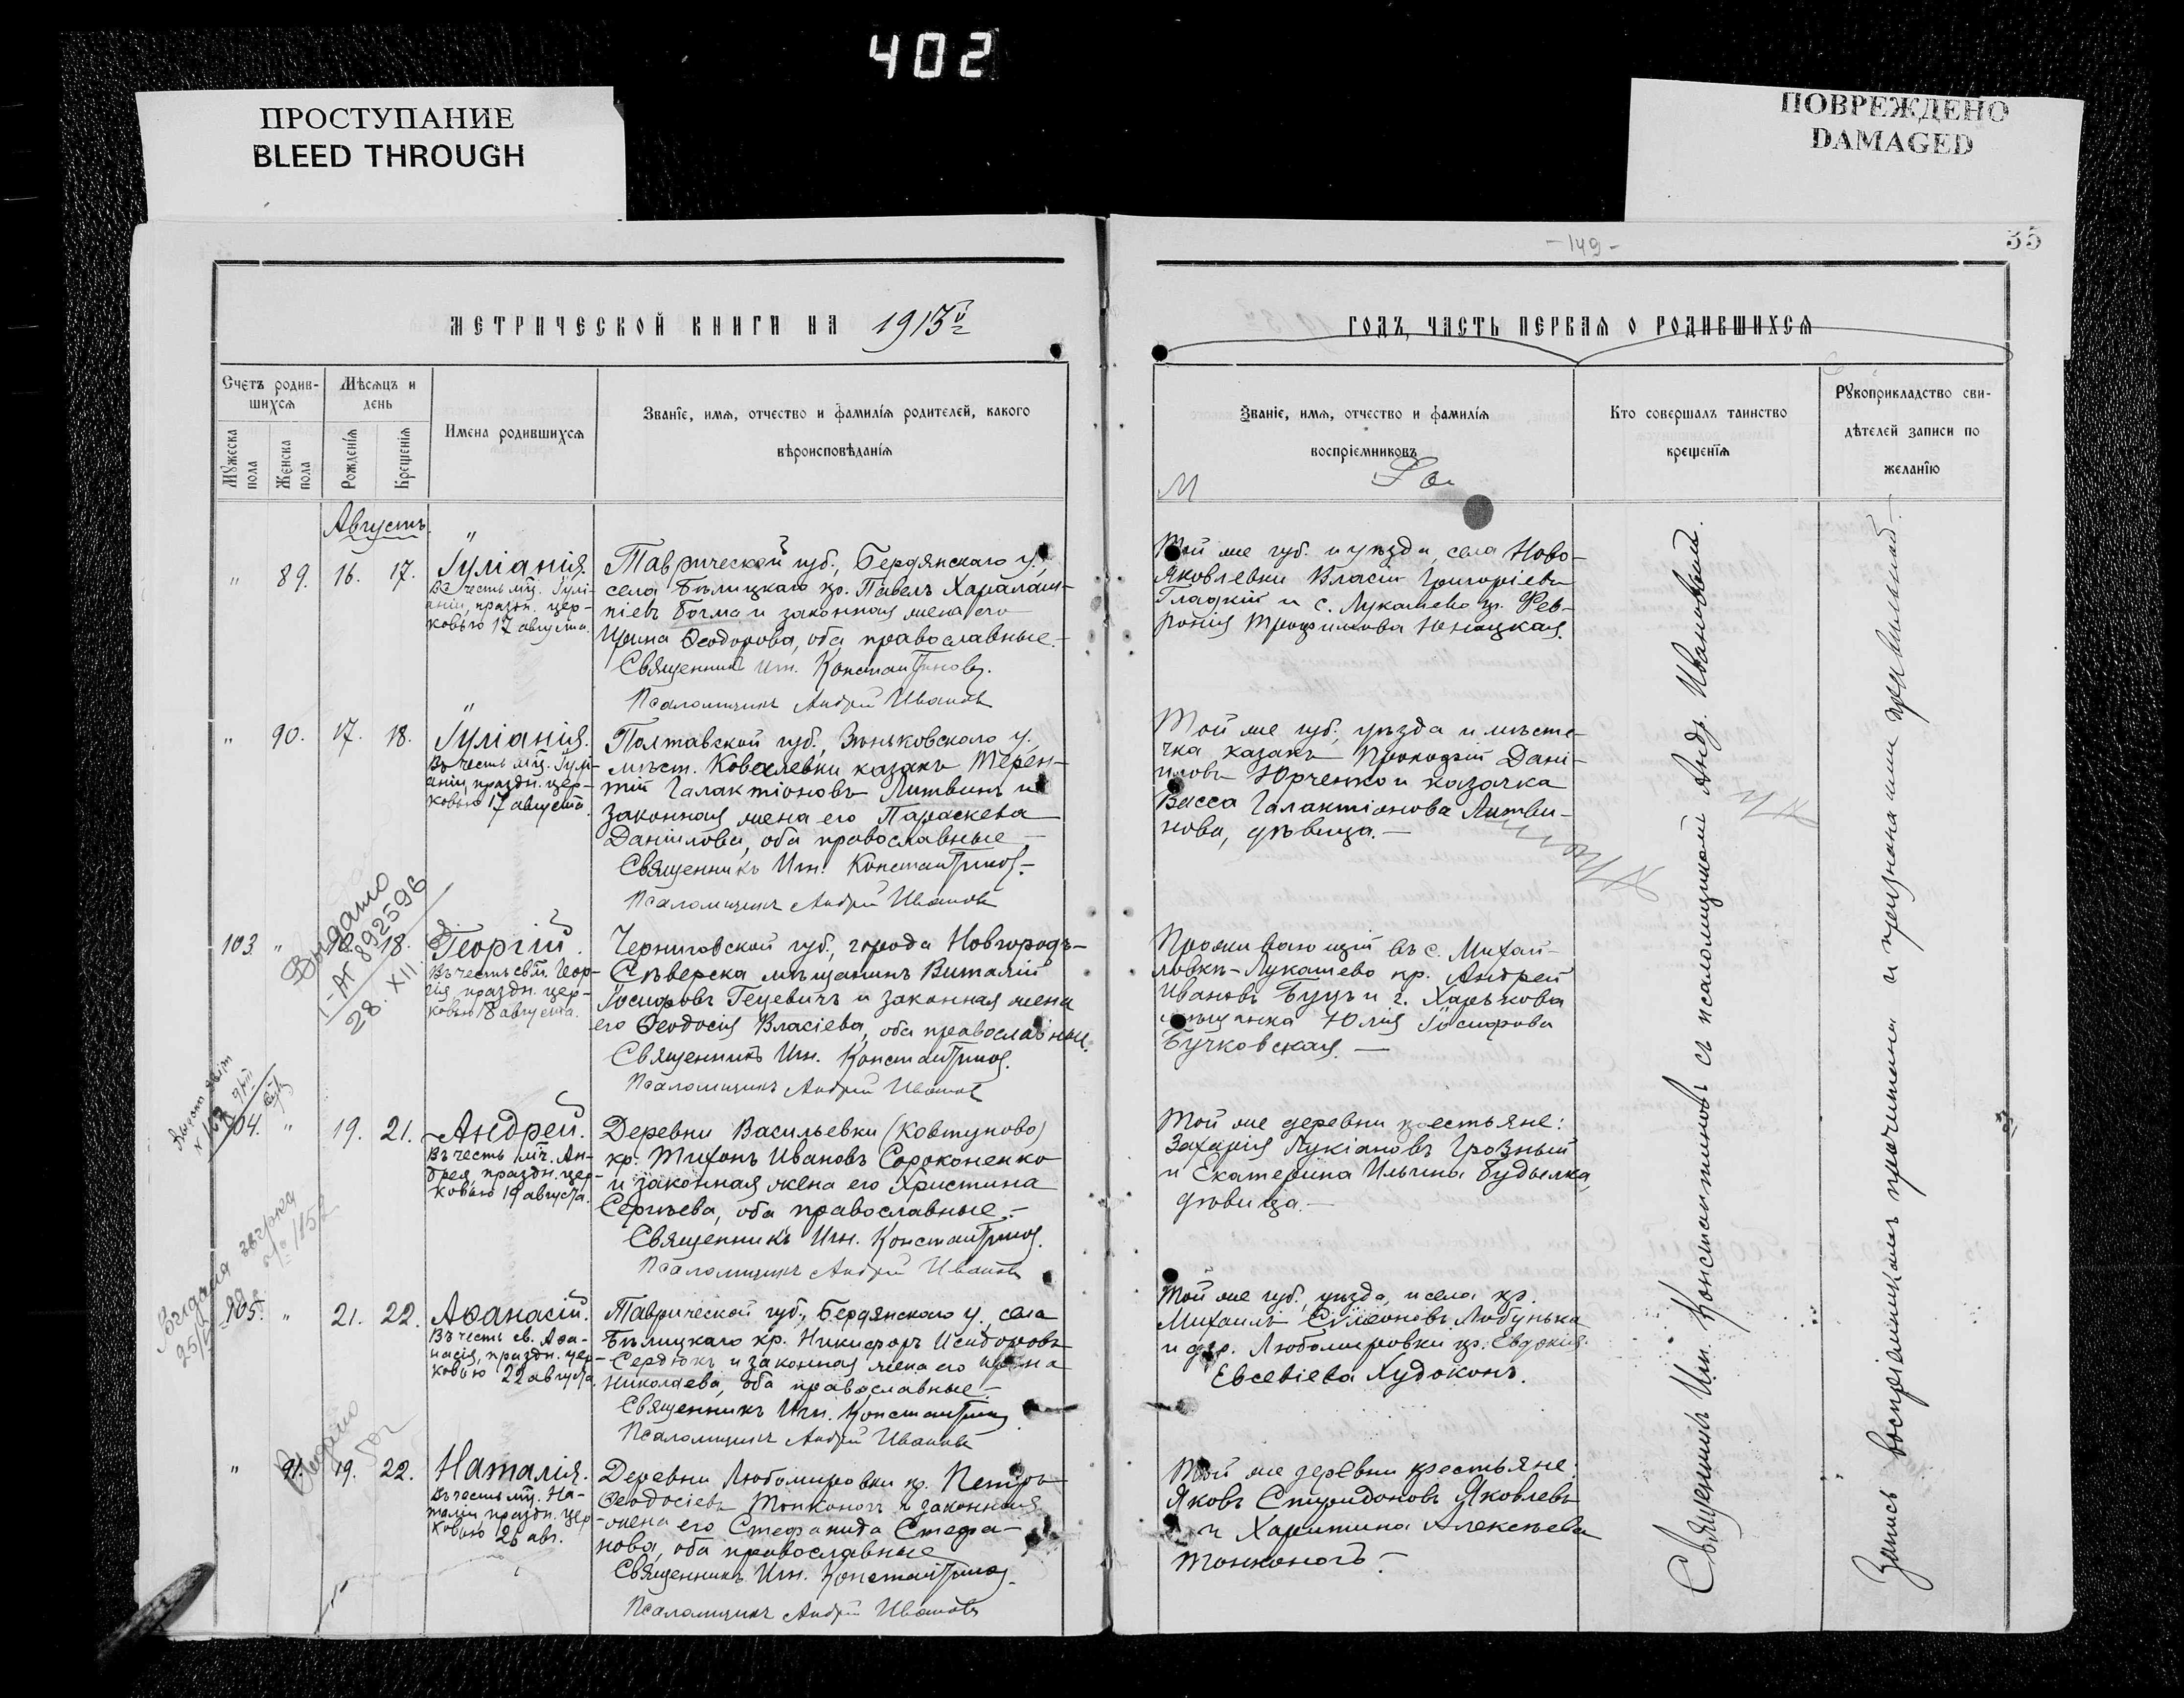 402
ПРОСТУПАНИЕ
BLEED THROUGH
ПОВРЕЖДЕНО
DAMAGED
МЕТРИЧЕСКОЙ КНИГИ НА 1913й
Счетъ родив-
шихся
Мѣсяцъ и
день
Имена родившихся
Званіе, имя, отчество и фамилія родителей, какого
вѣроисповѣданія
Мужеска
пола
Женска
пола
Рожденія
Крещенія
Августъ.
" 89. 16. 17. Іуліанія.
Въ честь мц. Іулі-
аніи, праздн. цер-
ковью 17 августа.
Таврической губ., Бердянскаго у.,
села Бѣлицкаго кр. Павелъ Харалам-
піевъ Богма и законная жена его
Ирина Ѳеодорова, оба православные.-
Священникъ Игн. Константиновъ.
Псаломщикъ Андрей Ивановъ
" 90. 17. 18. Іуліанія.
Въ честь мц. Іулі-
аніи, праздн. цер-
ковью 17 августа.
Полтавской губ., Зѣньковскаго у.,
мѣст. Ковалевки казакъ Терен-
тій Галактіоновъ Литвинъ и
законная жена его Параскева
Даніилова, оба православные -
Священникъ Игн. Константиновъ.-
Псаломщикъ Андрей Ивановъ
Выдано
I-АГ 892596
28. XII
103 " 18. Георгій.
Въ честь св. м. Геор-
гія праздн. цер-
ковью 18 августа.
Черниговской губ., города Новгородъ-
Сѣверска мѣщанинъ Виталій
Іосифовъ Гецевичъ и законная жена
его Ѳеодосія Власіева, оба православные.
Священникъ Игн. Константиновъ.
Псаломщикъ Андрей Ивановъ
104. " 19. 21. Андрей.
Въ честь мч. Ан-
дрея, праздн. цер-
ковью 19 августа.
Деревни Васильевки (Ковтуново)
кр. Тихонъ Ивановъ Сороконенко
и законная жена его Христина
Сергѣева, оба православные.-
Священникъ Игн. Константиновъ.
Псаломщикъ Андрей Ивановъ
105. " 21. 22. Аѳанасій.
Въ честь св. Аѳа-
насія, праздн. цер-
ковью 22 августа.
Таврической губ., Бердянскаго у., села
Бѣлицкаго кр. Никифоръ Исидоровъ
Сердюкъ и законная жена его Ирина
Николаева, оба православные.-
Священникъ Игн. Константиновъ
Псаломщикъ Андрей Ивановъ
Выдано
" 91. 19. 22. Наталія.
Въ честь мц. На-
таліи праздн. цер
ковью 26 авг.
Деревни Любомировки кр. Петръ
Ѳеодосіевъ Тонконогъ и законная
жена его Стефанида Стефа-
нова, оба православные
Священникъ Игн. Константиновъ.
Псаломщикъ Андрей Ивановъ
-149-
35
ГОДЪ, ЧАСТЬ ПЕРВАЯ О РОДИВШИХСЯ
Званіе, имя, отчество и фамилія
воспріемниковъ
Кто совершалъ таинство
крещенія
Рукоприкладство сви-
дѣтелей записи по
желанію
Той же губ. и уѣзда, села Ново-
Яковлевки Власій Григоріевъ
Гладкій и с. Лукашево кр. Фев-
ронія Трофимова Юницкая.
Той же губ., уѣзда и мѣсте-
чка казакъ Прокофій Дані-
иловъ Юрченко и казачка
Васса Галактіонова Литви-
нова, дѣвица.-
Проживающій въ с. Михай-
ловкѣ-Лукашево кр. Андрей
Ивановъ Буцъ и г. Харькова
мѣщанка Юлія Іосифова
Бучковская.-
Той же деревни крестьяне:
Захарія Лукіановъ Грозный
и Екатерина Ильина Будылка,
дѣвица.-
Той же губ., уѣзда, и села кр.
Михаилъ Сѵмеоновъ Любунька
и дер. Любомировки кр. Евдокія
Евсевіева Худоконь.
Той же деревни крестьяне:
Яковъ Спиридоновъ Яковлевъ
и Харитина Алексѣева
Тонконогъ.-
Священникъ Игн. Константиновъ съ псаломщикомъ Андр. Ивановымъ.
Запись воспріемникамъ прочитана и признана ими правильной.-